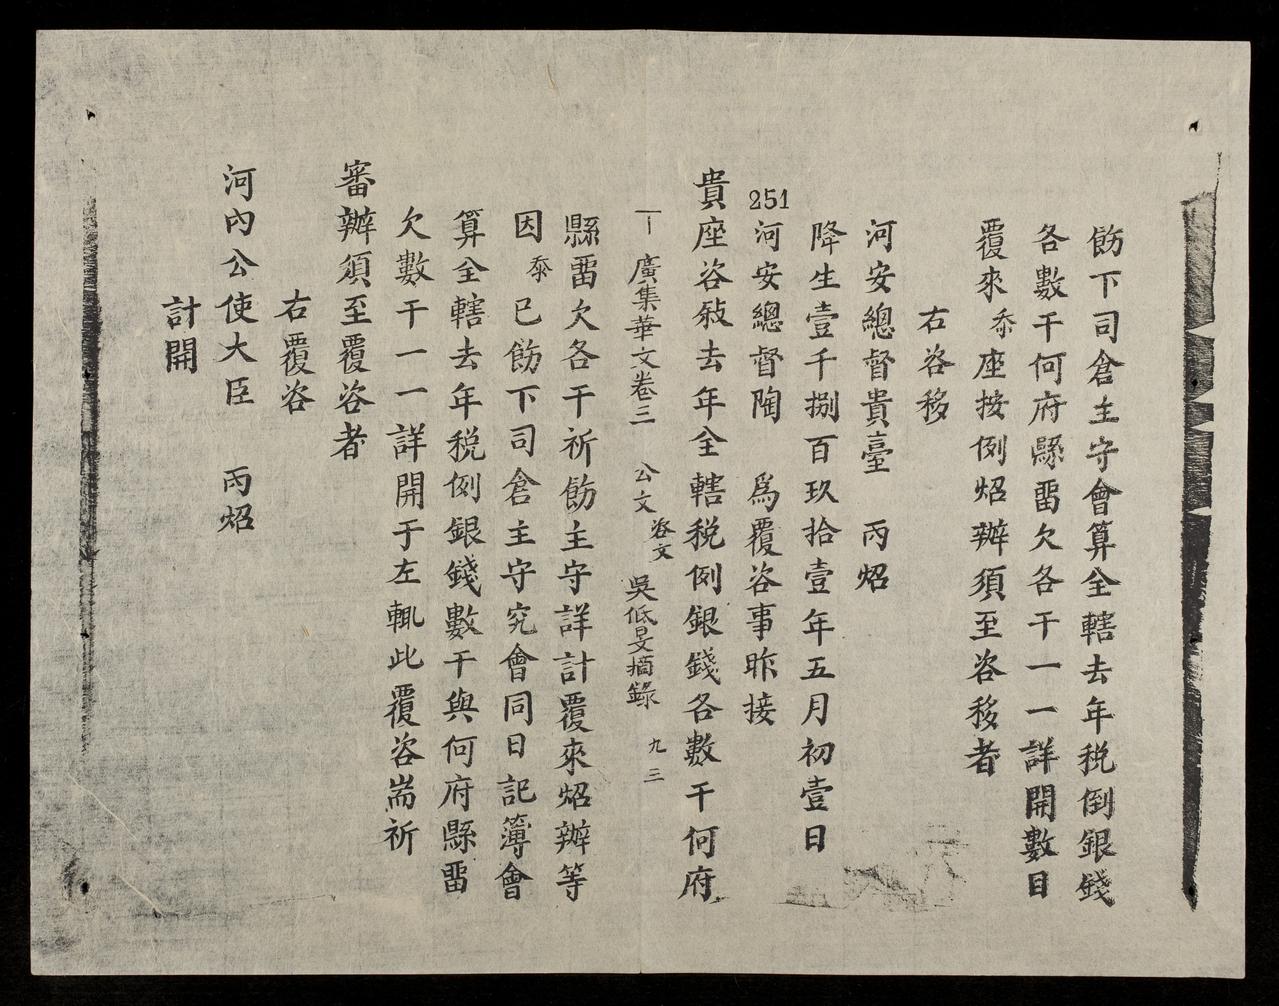 飭下司倉主守會算全轄去年稅倒銀錢
各數干何府縣畱欠各干一一詳開數目
覆來忝座按例炤辦須至咨移者
右咨移
河安總督貴臺 丙炤
降生壹千捌百玖拾壹年五月初壹日
251
河安總督陶 爲覆咨事昨接
貴座咨敍去年全轄稅例銀錢各數干何府
廣集華文卷三 公文 咨文 吳低旻摘錄 九三
縣畱欠各干祈飭主守詳計覆來炤辦等
因忝已飭下司倉主守究會同日記簿會
算全轄去年稅例銀錢數干與何府縣畱
欠數干一一詳開于左輒此覆咨耑祈
審辦須至覆咨者
右覆咨
河內公使大臣 丙炤
計開